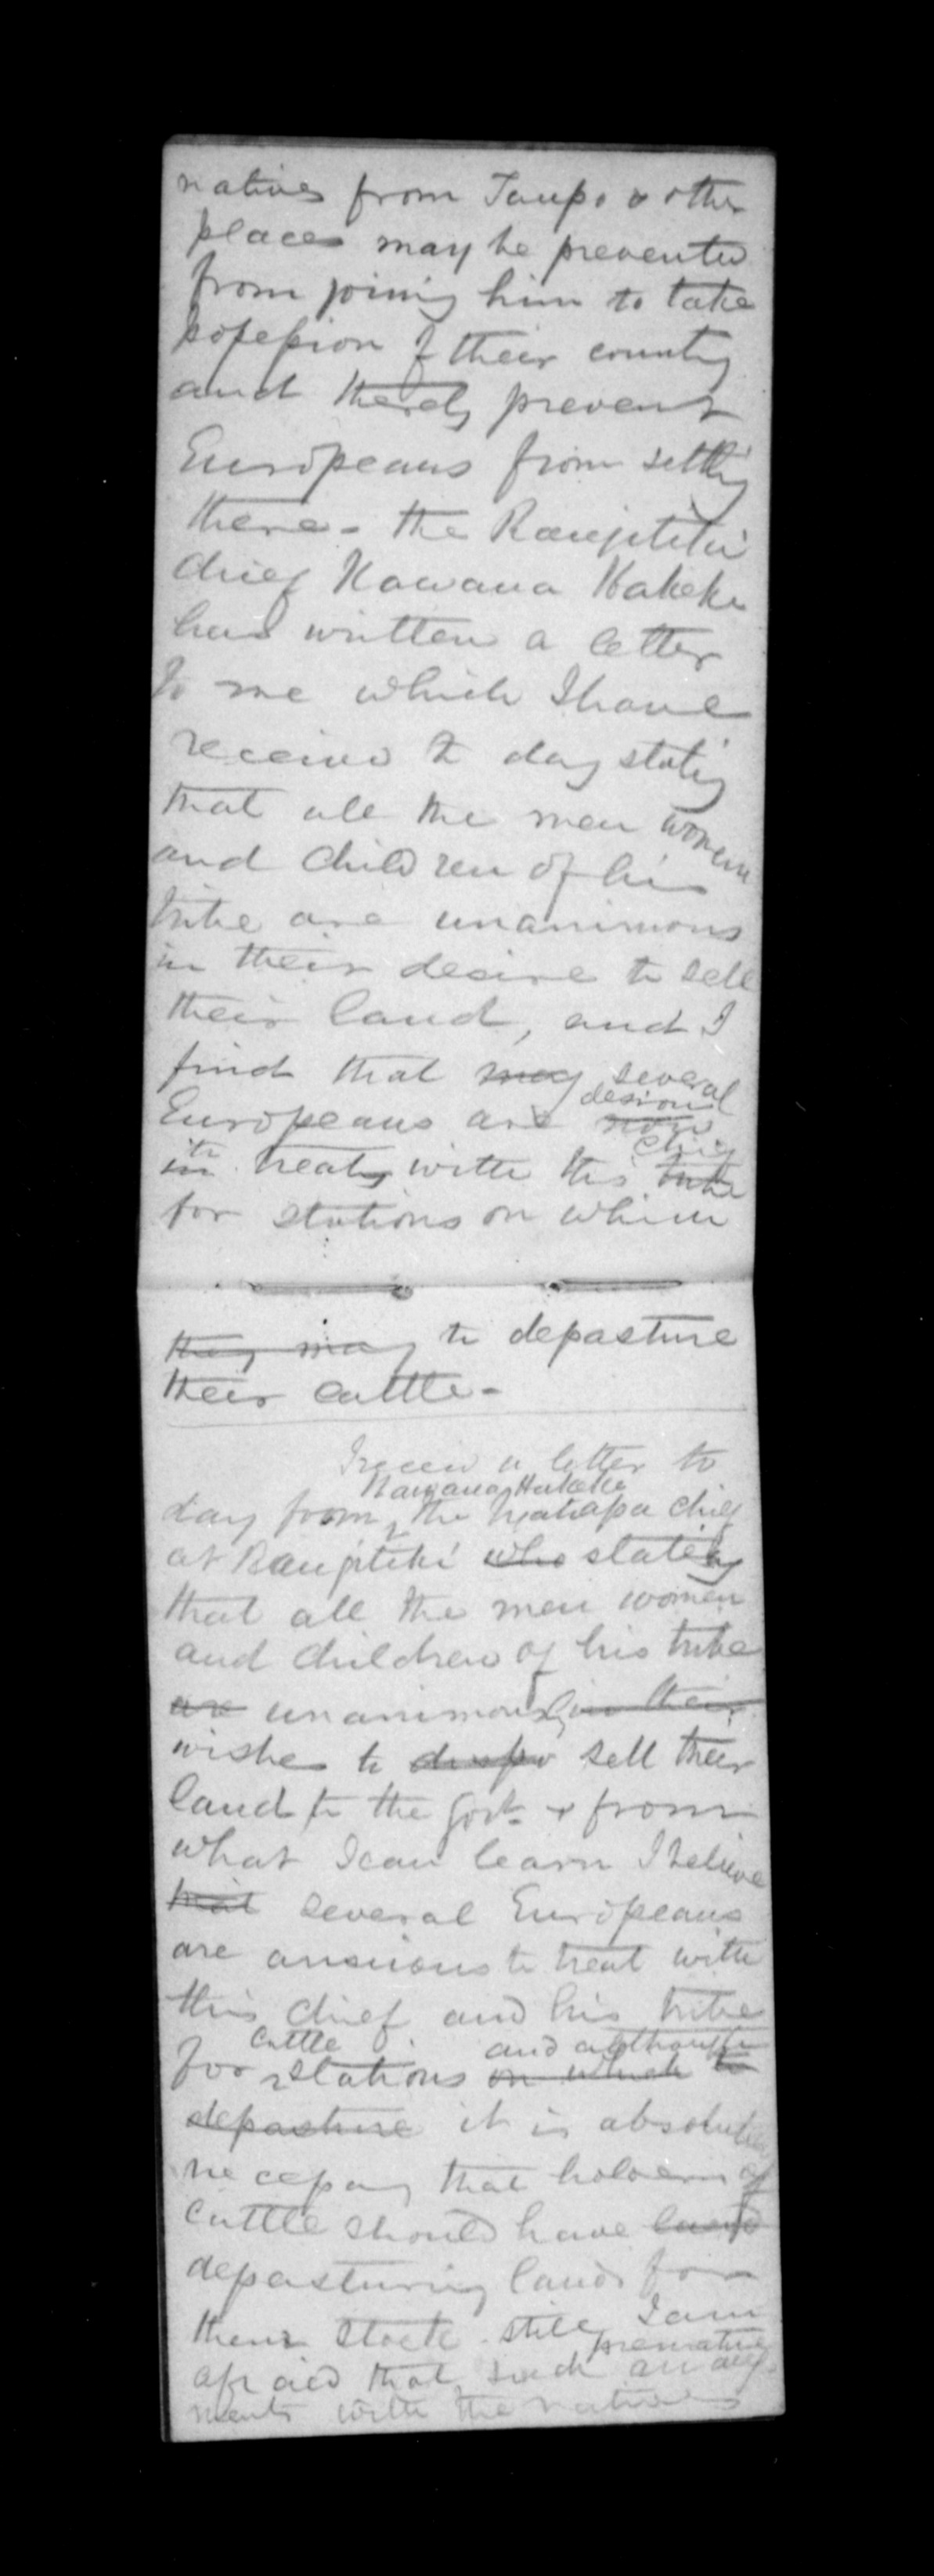 natives from Taupo & other
places may be prevented
from joining him to take
possession of their country
and thereby prevent
Europeans from settling
there - the Rangitikei
chief Kawana Hakeke
has written a letter
to me which I have
received to day stating
that all the men women
and children of his
tribe are unanimous
in their desire to sell
their land, and I
find that may several
desirous
Europeans are now
to chief
in treaty with this tribe
for stations on which
they may to depasture
their cattle -
I received a letter to
Kawana Hakeke
day from the Ngatiapa chief
at Rangitiki who stating
that all the men women
and children of his tribe
are unanimously in their
wishes to dispo sell their
land to the Govt. & from
what I can learn I believe
that several Europeans
are anxious to treat with
this chief and his tribe
cattle and although
for stations on which to
depasture it is absolutely
necessary that holders of
cattle should have land
depasturing lands for
their stock still I am
premature
afraid that such
ments with the natives